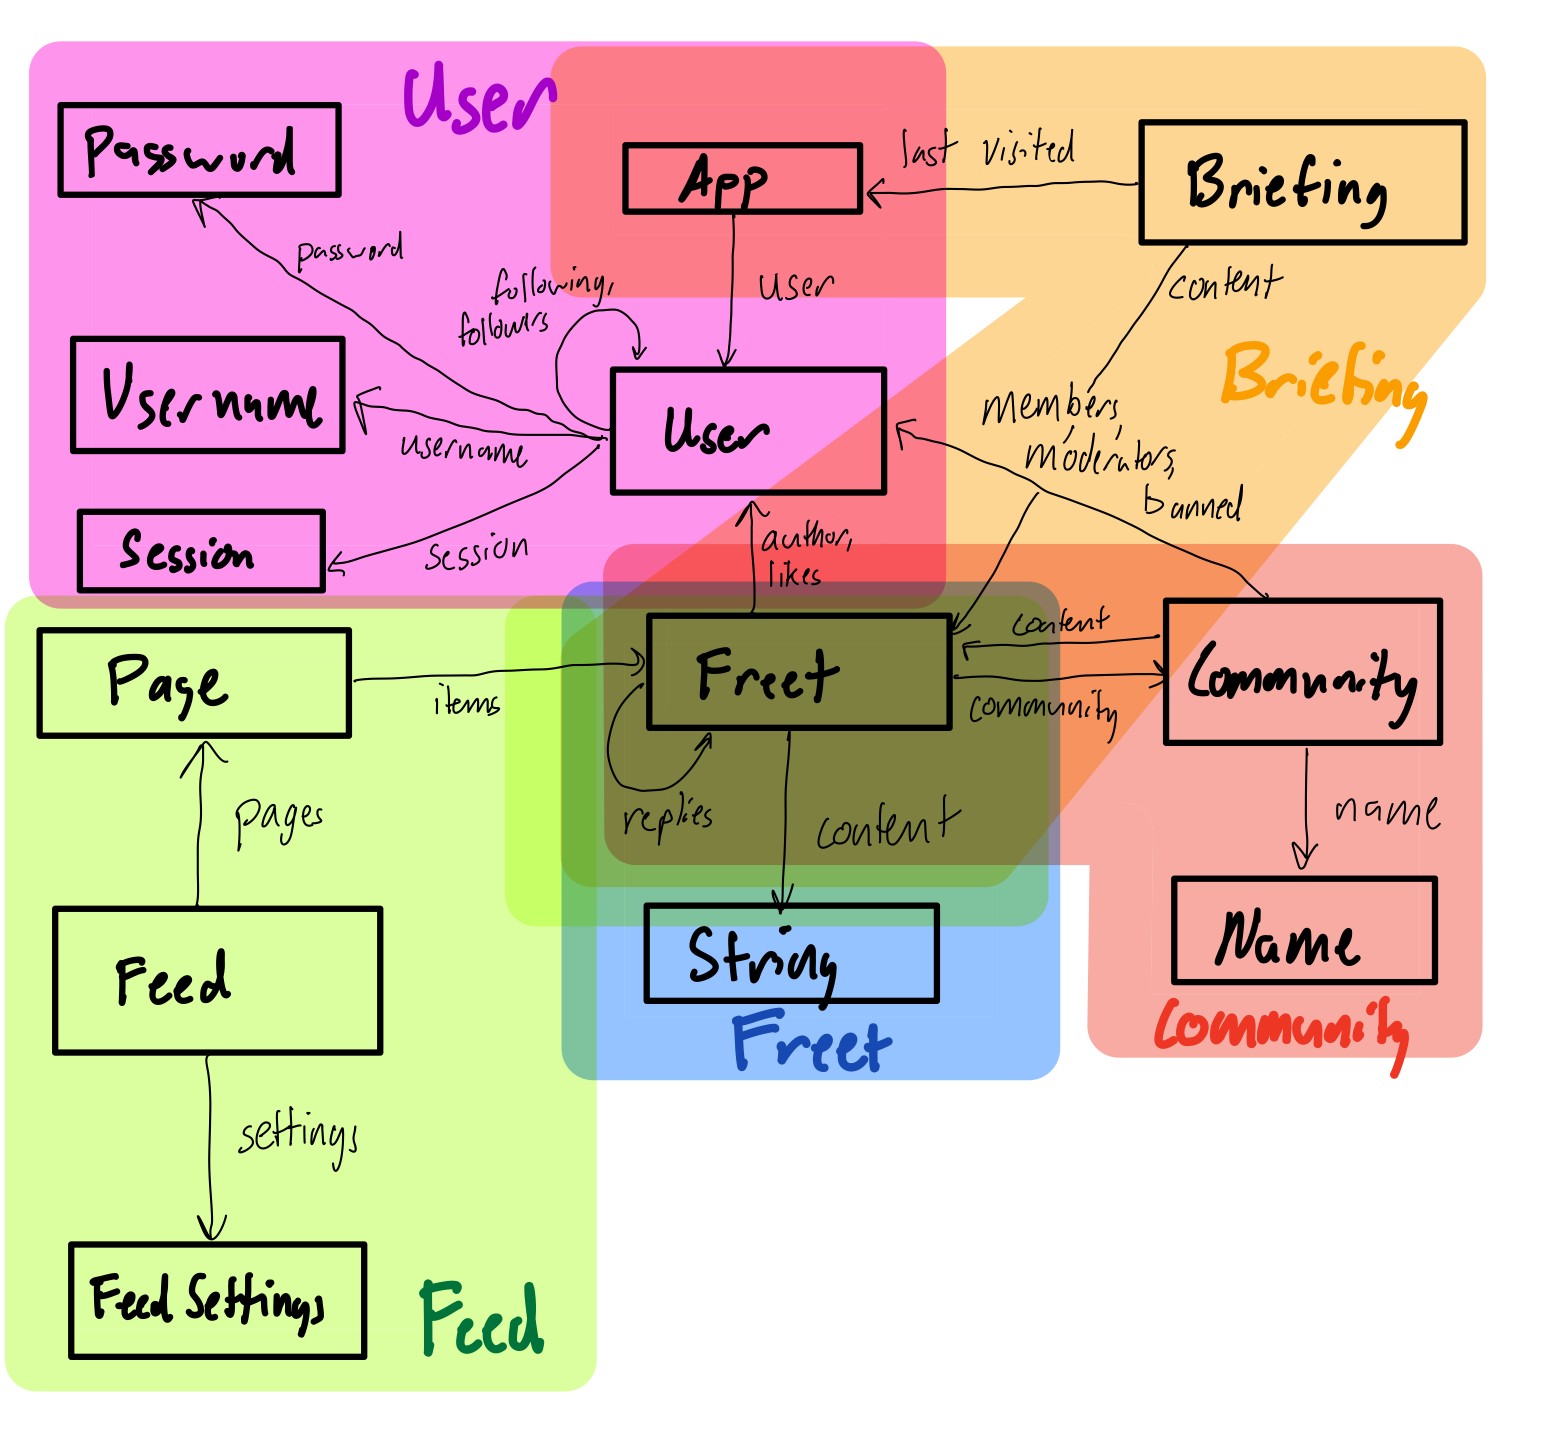 User
Password
App
last visited
Briefing
password
following,
followers
user
content
Briefing
Username
username
User
members,
moderators,
banned
Session
session
author,
likes
Page
items
Freet
content
community
Community
pages
replies
content
name
Feed
String
Name
Freet
Community
settings
Feed Settings
Feed